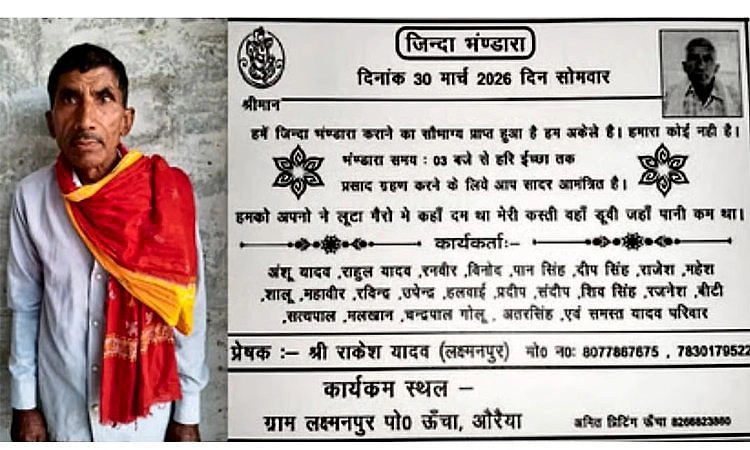 जिन्दा भंण्डारा
दिनांक 30 मार्च 2026 दिन सोमवार
श्रीमान
हमें जिन्दा भंण्डारा कराने का सौभाग्य प्राप्त हुआ है हम अकेले है। हमारा कोई नही है।
भंण्डारा समय : 03 बजे से हरि ईच्छा तक
प्रसाद ग्रहण करने के लिये आप सादर आमंत्रित है।
हमको अपनो ने लूटा गैरो मे कहाँ दम था मेरी कस्ती वहाँ डूवी जहाँ पानी कम था।
कार्यकर्ताः-
अंशू यादव ,राहुल यादव ,रनवीर ,विनोद ,पान सिंह ,दीप सिंह ,राजेश ,महेश
,शालू ,महावीर ,रविन्द्र ,उपेन्द्र ,हलवाई ,प्रदीप ,संदीप ,शिव सिंह ,रजनेश ,बीटी
,सत्यपाल ,मलखान ,चन्द्रपाल गोलू , अतरसिंह ,एवं समस्त यादव परिवार
प्रेषक :– श्री राकेश यादव (लक्ष्मनपुर) मो0 नः 8077887675 , 7830179522
कार्यकम स्थल –
ग्राम लक्ष्मनपुर पो0 ऊँचा, औरैया
अनित प्रिटिंग ऊँचा 8266823860